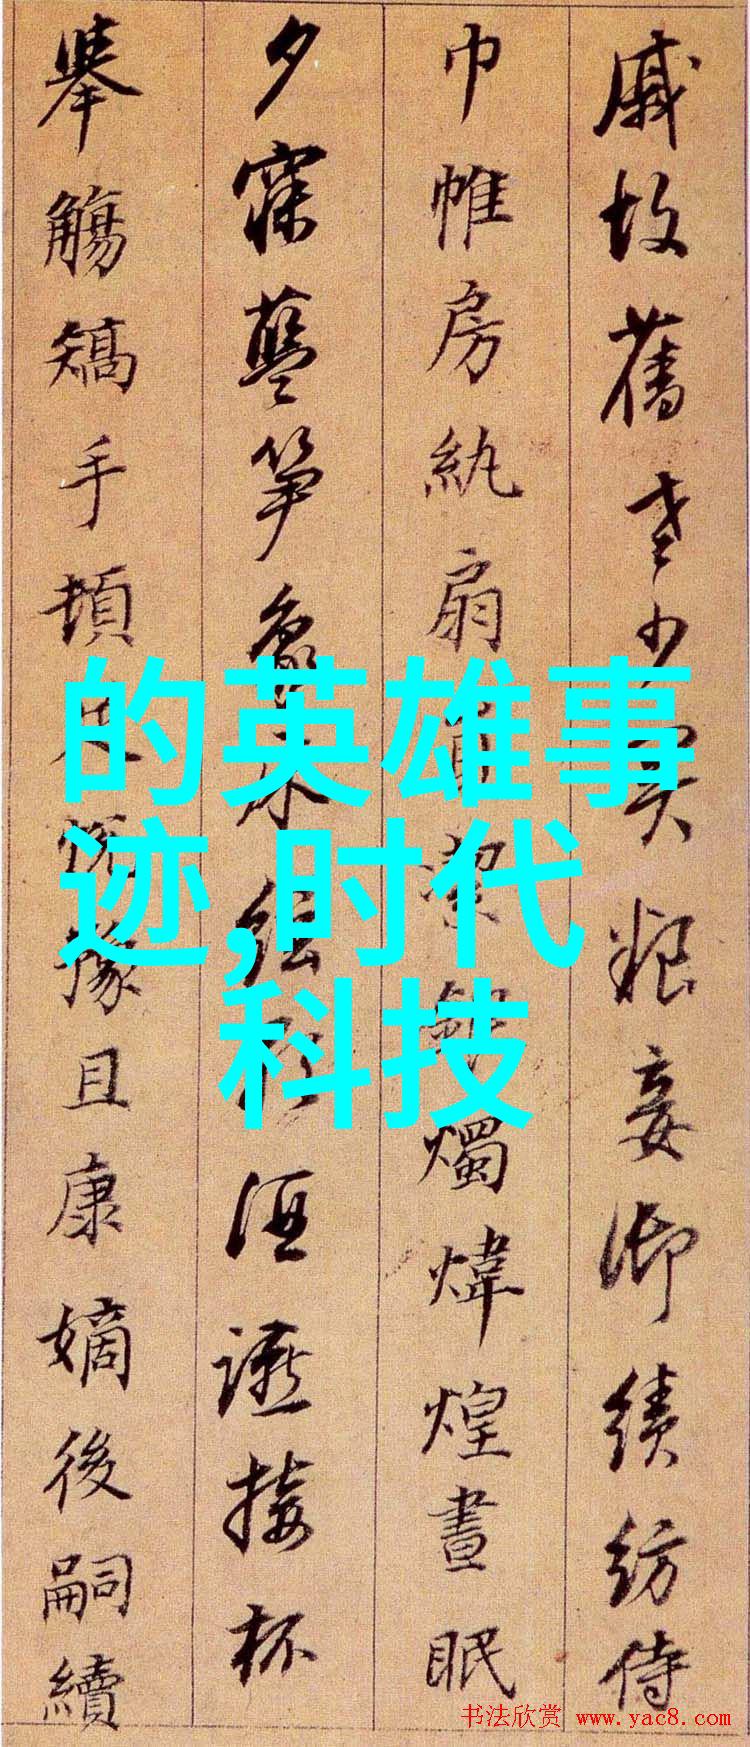 戚故舊老少異粮妾御績紡侍
巾帷房紈扇潔銀燭煒煌晝眠
夕寐藍笋象床絃酒讌接杯
舉觴矯手頓足悅豫且康嫡後嗣續
的英雄事
迹,时代
科技
书法欣赏 www.yac8.com